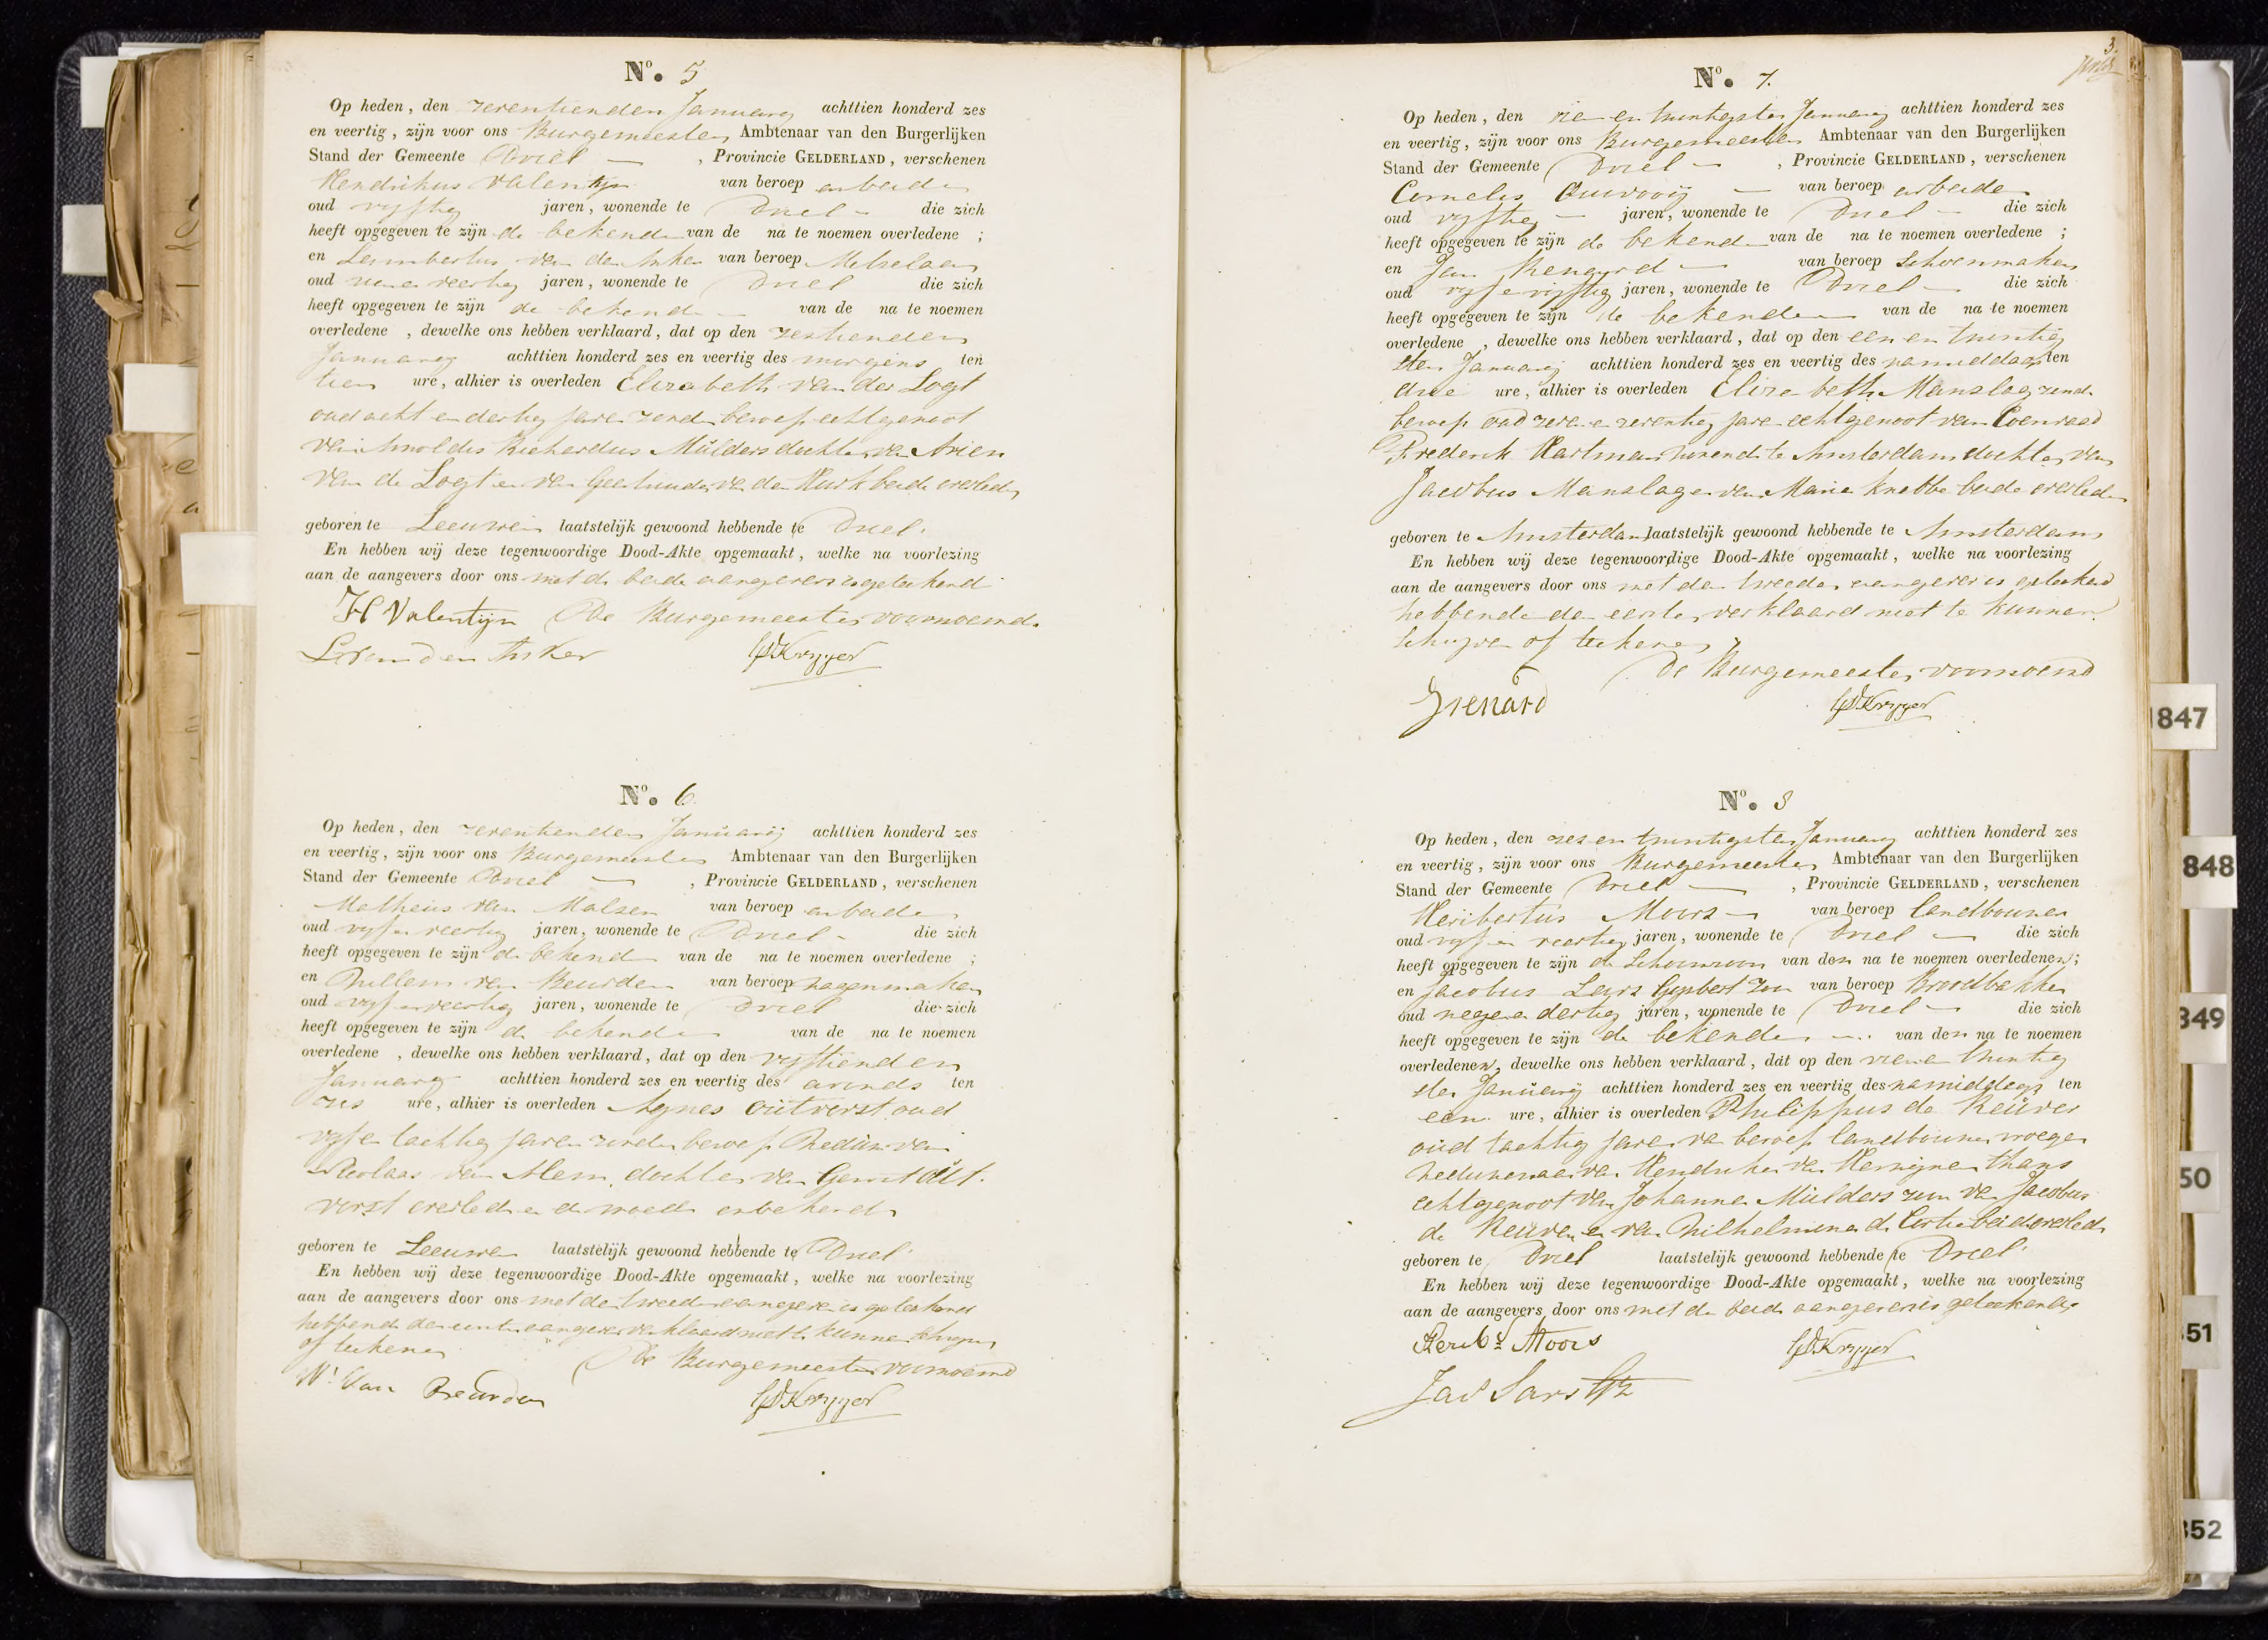 No. 5
Op heden, den zeventienden Januarij achttien honderd zes
en veertig, zijn voor ons Burgemeester Ambtenaar van den Burgerlijken
Stand der Gemeente Driel — , Provincie GELDERLAND, verschenen
Hendrikus Valentijn van beroep arbeider
oud vyftig jaren, wonende te Driel — die zich
heeft opgegeven te zijn de bekende van de na te noemen overledene ;
en Lambertus van den Anker van beroep Metselaar
oud jaren, wonende te Driel die zich
heeft opgegeven te zijn de bekende — van de na te noemen
overledene , dewelke ons hebben verklaard, dat op den zestienden
Januarij achttien honderd zes en veertig des morgens ten
tien ure, alhier is overleden Elizabeth van der Logt
oud acht en dertig jaren zonder beroep echtgenoot
van Arnoldus Richardus Mulders dochter van Arien
van de Logt en van Geertruida van den Hurk beide overleden
geboren te Leeuwen laatstelijk gewoond hebbende te Driel.
En hebben wij deze tegenwoordige Dood-Akte opgemaakt, welke na voorlezing
aan de aangevers door ons met de beide aangevers is geteekend
H Valentijn De Burgemeester voornoemd.
L van den Anker
No. 6.
Op heden, den zeventienden Januarij achttien honderd zes
en veertig, zijn voor ons Burgemeester Ambtenaar van den Burgerlijken
Stand der Gemeente Driel — , Provincie GELDERLAND, verschenen
Matheus van Malsen van beroep arbeider
oud vyf en veertig jaren, wonende te Driel — die zich
heeft opgegeven te zijn de bekende van de na te noemen overledene ;
en Willem van Beurden van beroep wagenmaker
oud vyf en veertig jaren, wonende te Driel die zich
heeft opgegeven te zijn de bekende van de na te noemen
overledene , dewelke ons hebben verklaard, dat op den vyftienden
Januarij achttien honderd zes en veertig des avonds ten
zes ure, alhier is overleden Agnes Uitverst oud
vyf en tachtig jaren zonder beroep Weduwe van
Nicolaas van Alem, dochter van Gerrit Uit.
verst overleden en de moeder onbekend
geboren te Leeuwen laatstelijk gewoond hebbende te Driel.
En hebben wij deze tegenwoordige Dood-Akte opgemaakt, welke na voorlezing
aan de aangevers door ons met de tweede aangever is geteekend
hebbende de eerste aangever verklaard niet te kunnen schryven
of teekenen
De Burgemeester voornoemd
W: Van Beurden
3.
No. 7.
Op heden, den vier en twintigsten Januarij achttien honderd zes
en veertig, zijn voor ons Burgemeester Ambtenaar van den Burgerlijken
Stand der Gemeente Driel — , Provincie GELDERLAND, verschenen
Cornelis — van beroep arbeider
oud vyftig — jaren, wonende te Driel — die zich
heeft opgegeven te zijn de bekende van de na te noemen overledene ;
en Jan — van beroep Schoenmaker
oud vyf en vyftig jaren, wonende te Driel — die zich
heeft opgegeven te zijn de bekende van de na te noemen
overledene , dewelke ons hebben verklaard, dat op den een en twintig
sten Januarij achttien honderd zes en veertig des namiddags ten
drie ure, alhier is overleden Elizabeth Manslag zonder
beroep oud zeven en zeventig jaren echtgenoot van Coenraad
Frederik Hartman wonende te Amsterdam dochter van
Jacobus Manslag en van Maria Knebbe beide overleden
geboren te Amsterdam laatstelijk gewoond hebbende te Amsterdam
En hebben wij deze tegenwoordige Dood-Akte opgemaakt, welke na voorlezing
aan de aangevers door ons met den tweeden aangever is geteekend
hebbende den eersten verklaard niet te kunnen
schryven of teekenen
De Burgemeester voornoemd
No. 8
Op heden, den zes en twintigsten Januarij achttien honderd zes
en veertig, zijn voor ons Burgemeester Ambtenaar van den Burgerlijken
Stand der Gemeente Driel — , Provincie GELDERLAND, verschenen
Heribertus Moors — van beroep landbouwer
oud vyf en veertig jaren, wonende te Driel — die zich
heeft opgegeven te zijn de Schoonzoon van den na te noemen overledenen ;
en Jacobus Gysbert zoon van beroep Broodbakker
oud negen en dertig jaren, wonende te Driel — die zich
heeft opgegeven te zijn de bekende van den na te noemen
overledenen, dewelke ons hebben verklaard, dat op den vier en twintig
sten Januarij achttien honderd zes en veertig des namiddags ten
een ure, alhier is overleden Philippus de Keuver
oud tachtig jaren van beroep landbouwer vroeger
weduwenaar van Hendrika van thans
echtgenoot van Johanna Mulders zoon van Jacobus
de Keuver en van Wilhelmina de beide overleden
geboren te Driel laatstelijk gewoond hebbende te Driel.
En hebben wij deze tegenwoordige Dood-Akte opgemaakt, welke na voorlezing
aan de aangevers door ons met de beide aangevers is geteekend
Herbs Moors
847
848
849
50
51
352